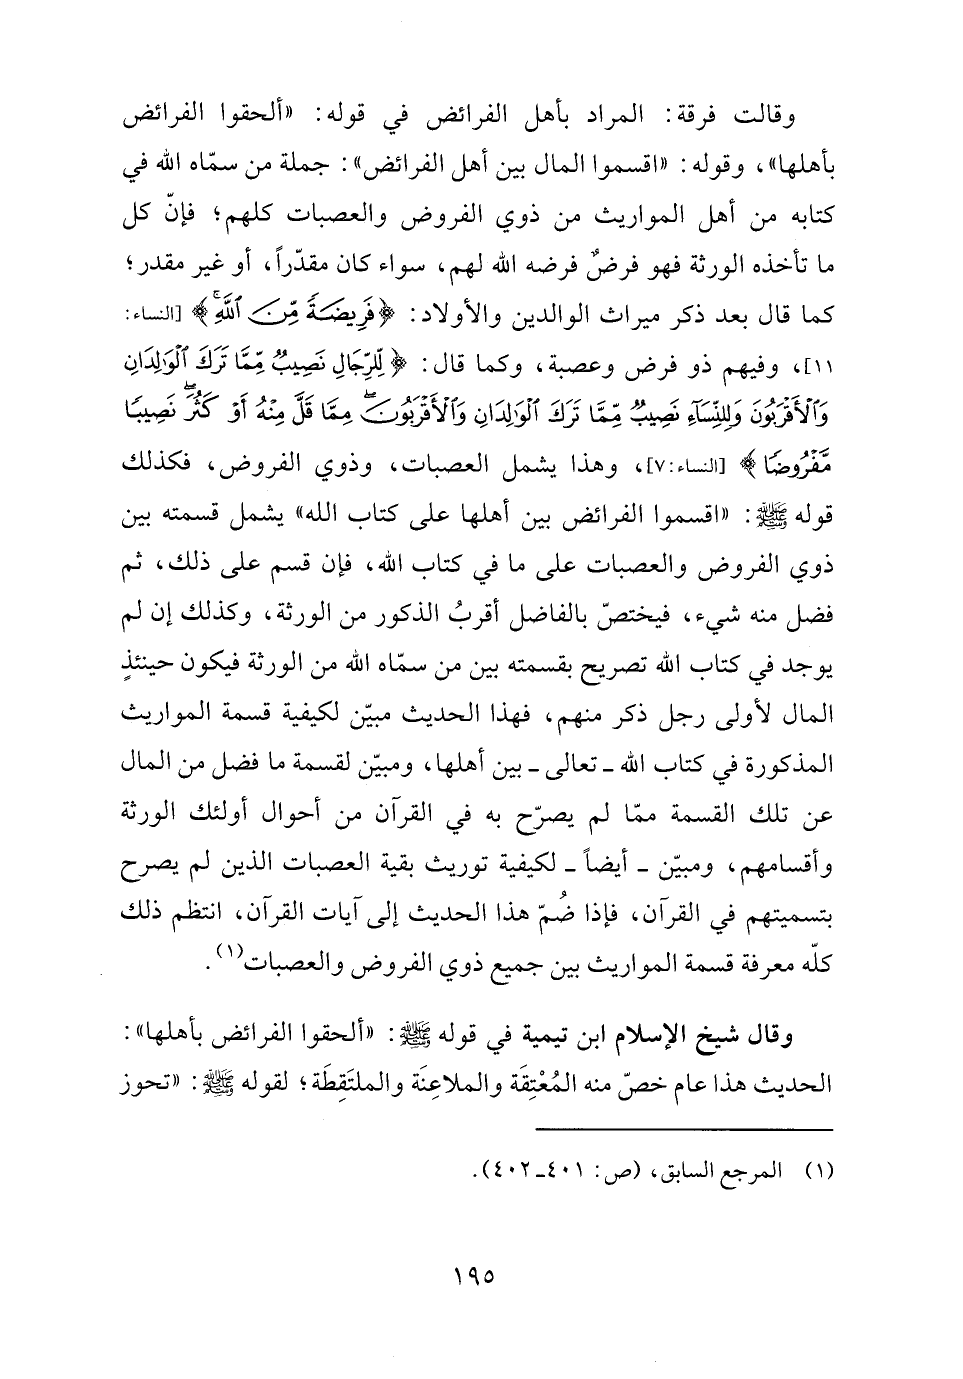 وقالت فرقة: المراد بأهل الفرائض في قوله: «ألحقوا الفرائض
بأهلها»، وقوله: «اقسموا المال بين أهل الفرائض»: جملة من سمّاه الله في
كتابه من أهل المواريث من ذوي الفروض والعصبات كلهم؛ فإنّ كل
ما تأخذه الورثة فهو فرضٌ فرضه الله لهم، سواء كان مقدّراً، أو غير مقدر؛
كما قال بعد ذكر ميراث الوالدين والأولاد: ﴿فَرِيضَةً مِّنَ ٱللَّهِۚ﴾ [النساء:
١١]، وفيهم ذو فرض وعصبة، وكما قال: ﴿لِّلرِّجَالِ نَصِيبٌ مِّمَّا تَرَكَ ٱلْوَٰلِدَانِ
وَٱلْأَقْرَبُونَ وَلِلنِّسَآءِ نَصِيبٌ مِّمَّا تَرَكَ ٱلْوَٰلِدَانِ وَٱلْأَقْرَبُونَ مِمَّا قَلَّ مِنْهُ أَوْ كَثُرَۚ نَصِيبًا
مَّفْرُوضًا﴾ [النساء:٧]، وهذا يشمل العصبات، وذوي الفروض، فكذلك
قوله ﷺ: «اقسموا الفرائض بين أهلها على كتاب الله» يشمل قسمته بين
ذوي الفروض والعصبات على ما في كتاب الله، فإن قسم على ذلك، ثم
فضل منه شيء، فيختصّ بالفاضل أقربُ الذكور من الورثة، وكذلك إن لم
يوجد في كتاب الله تصريح بقسمته بين من سمّاه الله من الورثة فيكون حينئذٍ
المال لأولى رجل ذكر منهم، فهذا الحديث مبيّن لكيفية قسمة المواريث
المذكورة في كتاب الله ـ تعالى ـ بين أهلها، ومبيّن لقسمة ما فضل من المال
عن تلك القسمة ممّا لم يصرّح به في القرآن من أحوال أولئك الورثة
وأقسامهم، ومبيّن ـ أيضاً ـ لكيفية توريث بقية العصبات الذين لم يصرح
بتسميتهم في القرآن، فإذا ضُمّ هذا الحديث إلى آيات القرآن، انتظم ذلك
كلّه معرفة قسمة المواريث بين جميع ذوي الفروض والعصبات(١).
وقال شيخ الإسلام ابن تيمية في قوله ﷺ: «ألحقوا الفرائض بأهلها»:
الحديث هذا عام خصّ منه المُعْتِقَة والملاعِنَة والملتَقِطَة؛ لقوله ﷺ: «تحوز
(١) المرجع السابق، (ص: ٤٠١ـ٤٠٢).
١٩٥